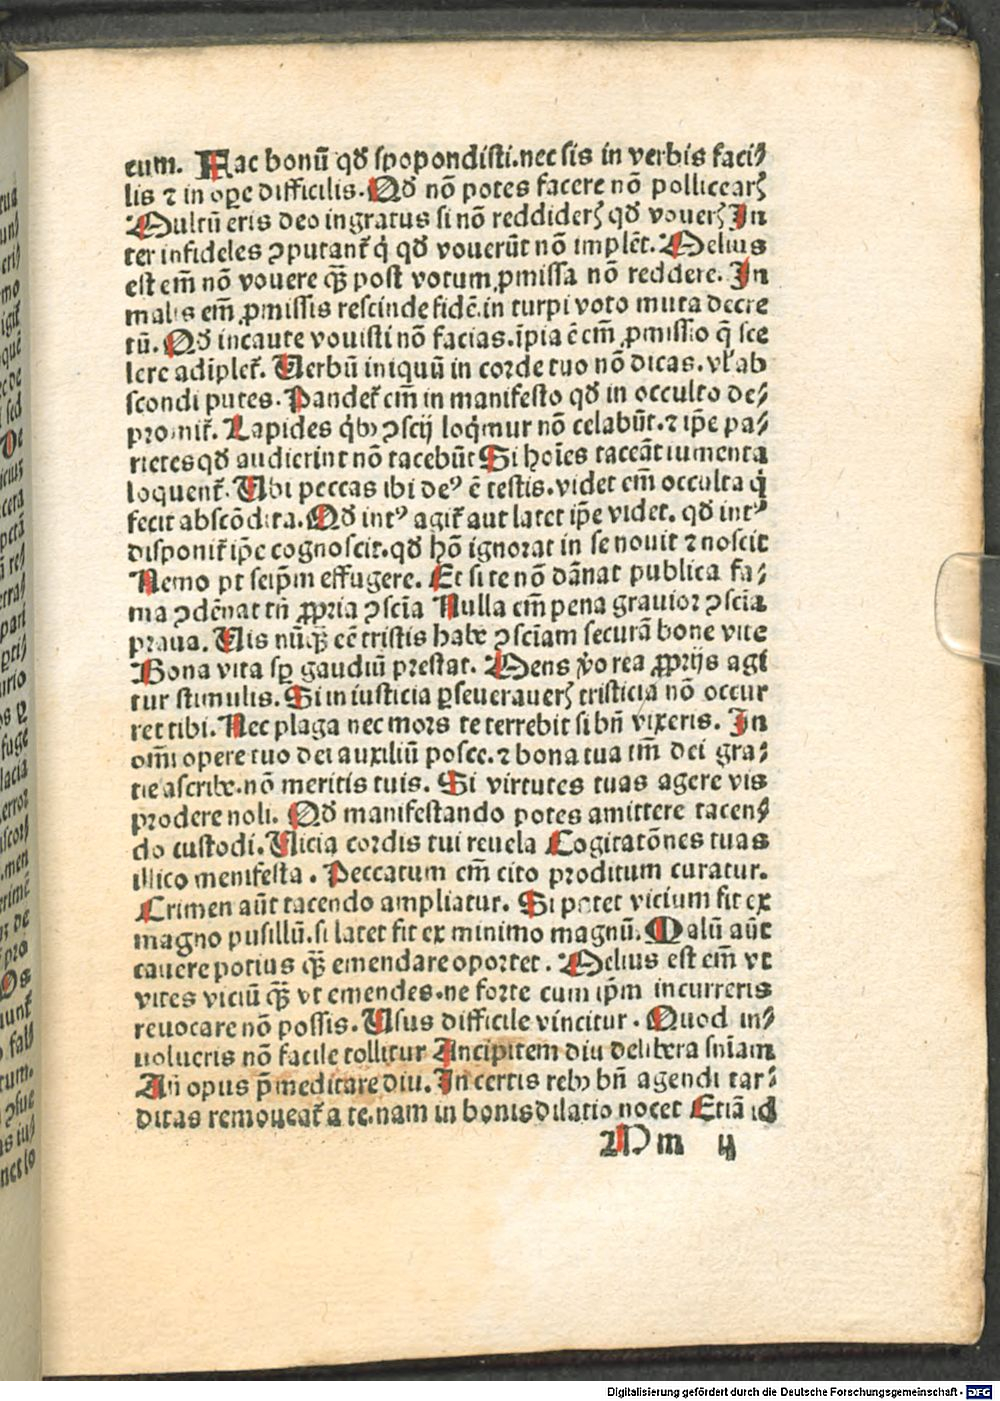 eum. Fac bonū qď spopondisti.nec sis in verbis faci⸗
lis ⁊ in oꝑe difficilis. Qď nō potes facere nō pollicearꝭ
Multū eris deo ingratus si nō reddiderꝭ qď vouerꝭ In
ter infideles ꝯputant̃ q̇ qď vouerūt nō implēt. Melius
est em̄ nō vouere qꝫ̈ post votum ꝓmissa nō reddere. In
malis em̄ ꝓmissis rescinde fidē.in turpi voto muta decre
tū. Qď incaute vouisti nō facias.īpia ē em̄ ꝓmissio q̄ sce
lere adīplet̃. Verbū iniquū in corde tuo nō dicas. vl̓ ab
scondi putes. Pandet̃ em̄ in manifesto qď in occulto de⸗
promit̃. Lapides q̇bꝰ ꝯscij loq̇mur nō celabūt.⁊ ip̄e pa⸗
rietes qď audierint nō tacebūt Si hoīes taceāt iumenta
loquent̃. Ubi peccas ibi deꝰ ē testis.videt em̄ occulta q̇
fecit abscōdita. Qď intꝰ agit̃ aut latet ip̄e videt. qď intꝰ
disponit̃ ip̄e cognoscit.qď hō ignorat in se nouit ⁊ noscit
Nemo pt seip̄m effugere. Et si te nō dānat publica fa⸗
ma ꝯdēnat tn̄ ꝓpria ꝯscīa Nulla em̄ pena grauior ꝯscīa
praua. Uis nūqꝫ̈ eē tristis habe ꝯsciam securā bone vite
Bona vita sꝑ gaudiū prestat. Mens v̓o rea ꝓprijs agi
tur stimulis. Si in iusticia ꝑseuerauerꝭ tristicia nō occur
ret tibi. Nec plaga nec mors te terrebit si bn̄ vixeris. In
om̄i opere tuo dei auxiliū posce.⁊ bona tua tm̄ dei gra⸗
tie ascribe.nō meritis tuis. Si virtutes tuas agere vis
prodere noli. Qď manifestando potes amittere tacen⸗
do custodi. Uicia cordis tui reuela Cogitatōnes tuas
illico menifesta. Peccatum em̄ cito proditum curatur.
Crimen aūt tacendo ampliatur. Si patet vicium fit ex
magno pusillū.si latet fit ex minimo magnū. Malū aūt
cauere potius qꝫ̈ emendare oportet. Melius est em̄ vt
vites viciū qꝫ̈ vt emendes.ne forte cum ip̄m incurreris
reuocare nō possis. Usus difficile vincitur. Quod in⸗
uolueris nō facile tollitur Ancipitem diu delibera sn̄iam
An̄ opus p̄meditare diu. In certis rebꝰ bn̄ agendi tar⸗
ditas remoueat̃ a te.nam in bonis dilatio nocet Etiā id
Mm ij
Digitalisierung gefördert durch die Deutsche Forschungsgemeinschaft - DFG